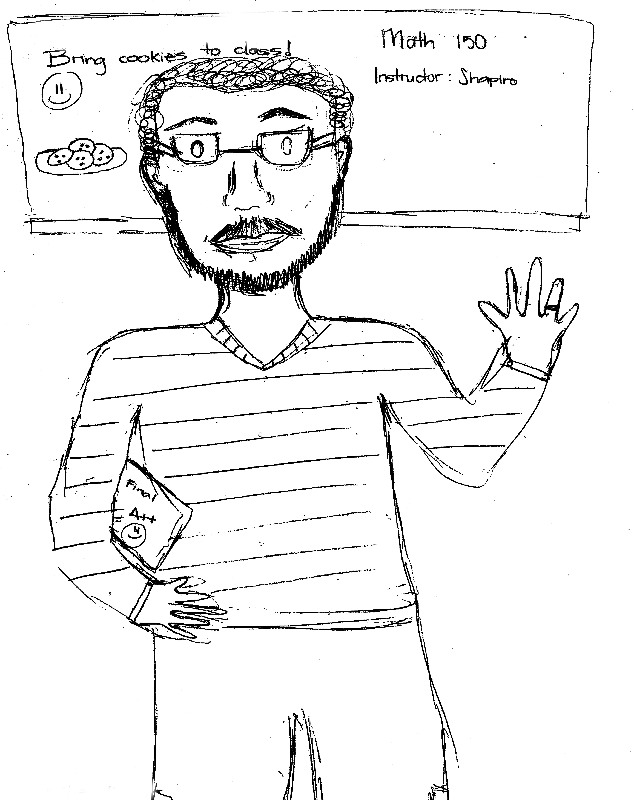 Bring cookies to class!
Math 150
Instructor: Shapiro
Final
A++